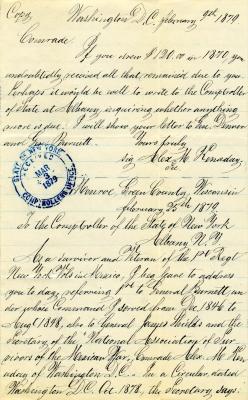 Copy, Washington D.C. February 9th 1879
Comrade
If you drew $120.00 in 1870, you
undoubtedly received all that remained due to you
Perhaps it would be well to write to the Comptroller
of State at Albany, inquiring whether anything
more is due. I will show your letter to Gen. Denver
and Gen Burnett. Yours truly
sig Alex M. Kenaday,
STATE OF NEW YORK
RECEIVED
MAR
3
1879
COMPTROLLER'S OFFICE
Monroe, Green County, Wisconsin
February 25th 1879
To the Comptroller of the State of New York
Albany N.Y.
As a survivor and Veteran of the 1st Regt
New York Vols in Mexico, I beg leave to address
you to day, referring 1st to General Burnett, un
der whose Command I served from Dec 1846 to
Aug 1848, also to General James Shields and the
Secretary of the National Association of Sur
vivors of the Mexican War, Comrade Alex. M. Ken
aday of Washington D.C. In a Circular dated
Washington D.C. Oct 1878, the Secretary says.